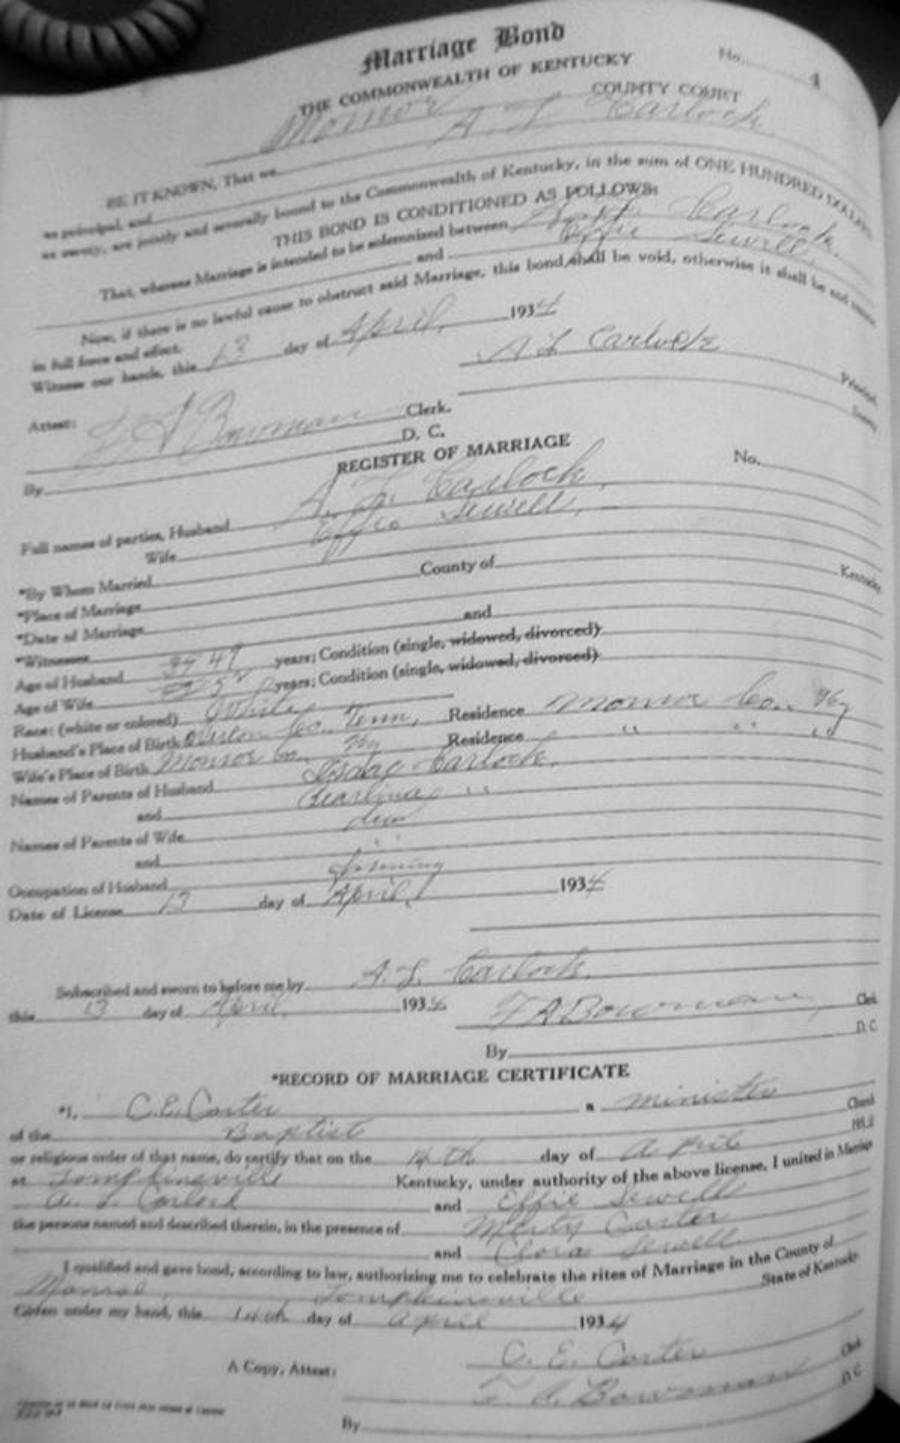 Marriage Bond
No. 4
THE COMMONWEALTH OF KENTUCKY
Monroe COUNTY COURT
BE IT KNOWN, That we A L Carlock
as principal, and
as surety, are jointly and severally bound to the Commonwealth of Kentucky, in the sum of ONE HUNDRED DOLLARS
THIS BOND IS CONDITIONED AS FOLLOWS:
That, whereas Marriage is intended to be solemnized between Carlock
and Effie Sewell
Now, if there is no lawful cause to obstruct said Marriage, this bond shall be void, otherwise it shall be and remain
in full force and effect.
Witness our hands, this 13 day of April, 1934
A L Carlock
Principal
Surety
Attest: Bowman Clerk.
By D. C.
REGISTER OF MARRIAGE
No.
Full names of parties, Husband A. L. Carlock,
Wife Effie Sewell,
*By Whom Married
*Place of Marriage County of Kentucky
*Date of Marriage
*Witnesses and
Age of Husband 49 years; Condition (single, widowed, divorced)
Age of Wife years; Condition (single, widowed, divorced)
Race: (white or colored) White
Husband's Place of Birth Overton Co. Tenn, Residence Monroe Co. Ky
Wife's Place of Birth Monroe Co. Ky Residence " " "
Names of Parents of Husband Isaac Carlock,
and "
Names of Parents of Wife
and
Occupation of Husband Farming
Date of License 13 day of April, 1934
Subscribed and sworn to before me by A. L. Carlock,
this 13 day of April, 1934
Bowman, Clerk
By D. C
*RECORD OF MARRIAGE CERTIFICATE
*I, C. E. Carter a minister
of the Baptist Church
or religious order of that name, do certify that on the 14th day of April 193
at Tompkinsville Kentucky, under authority of the above license, I united in Marriage
A. L. Carlock and Effie Sewell
the persons named and described therein, in the presence of Carter
and Clora Sewell
I qualified and gave bond, according to law, authorizing me to celebrate the rites of Marriage in the County of
Monroe, Tompkinsville State of Kentucky
Given under my hand, this 14th day of April 1934
C. E. Carter
A Copy, Attest: Bowman Clerk
By D C